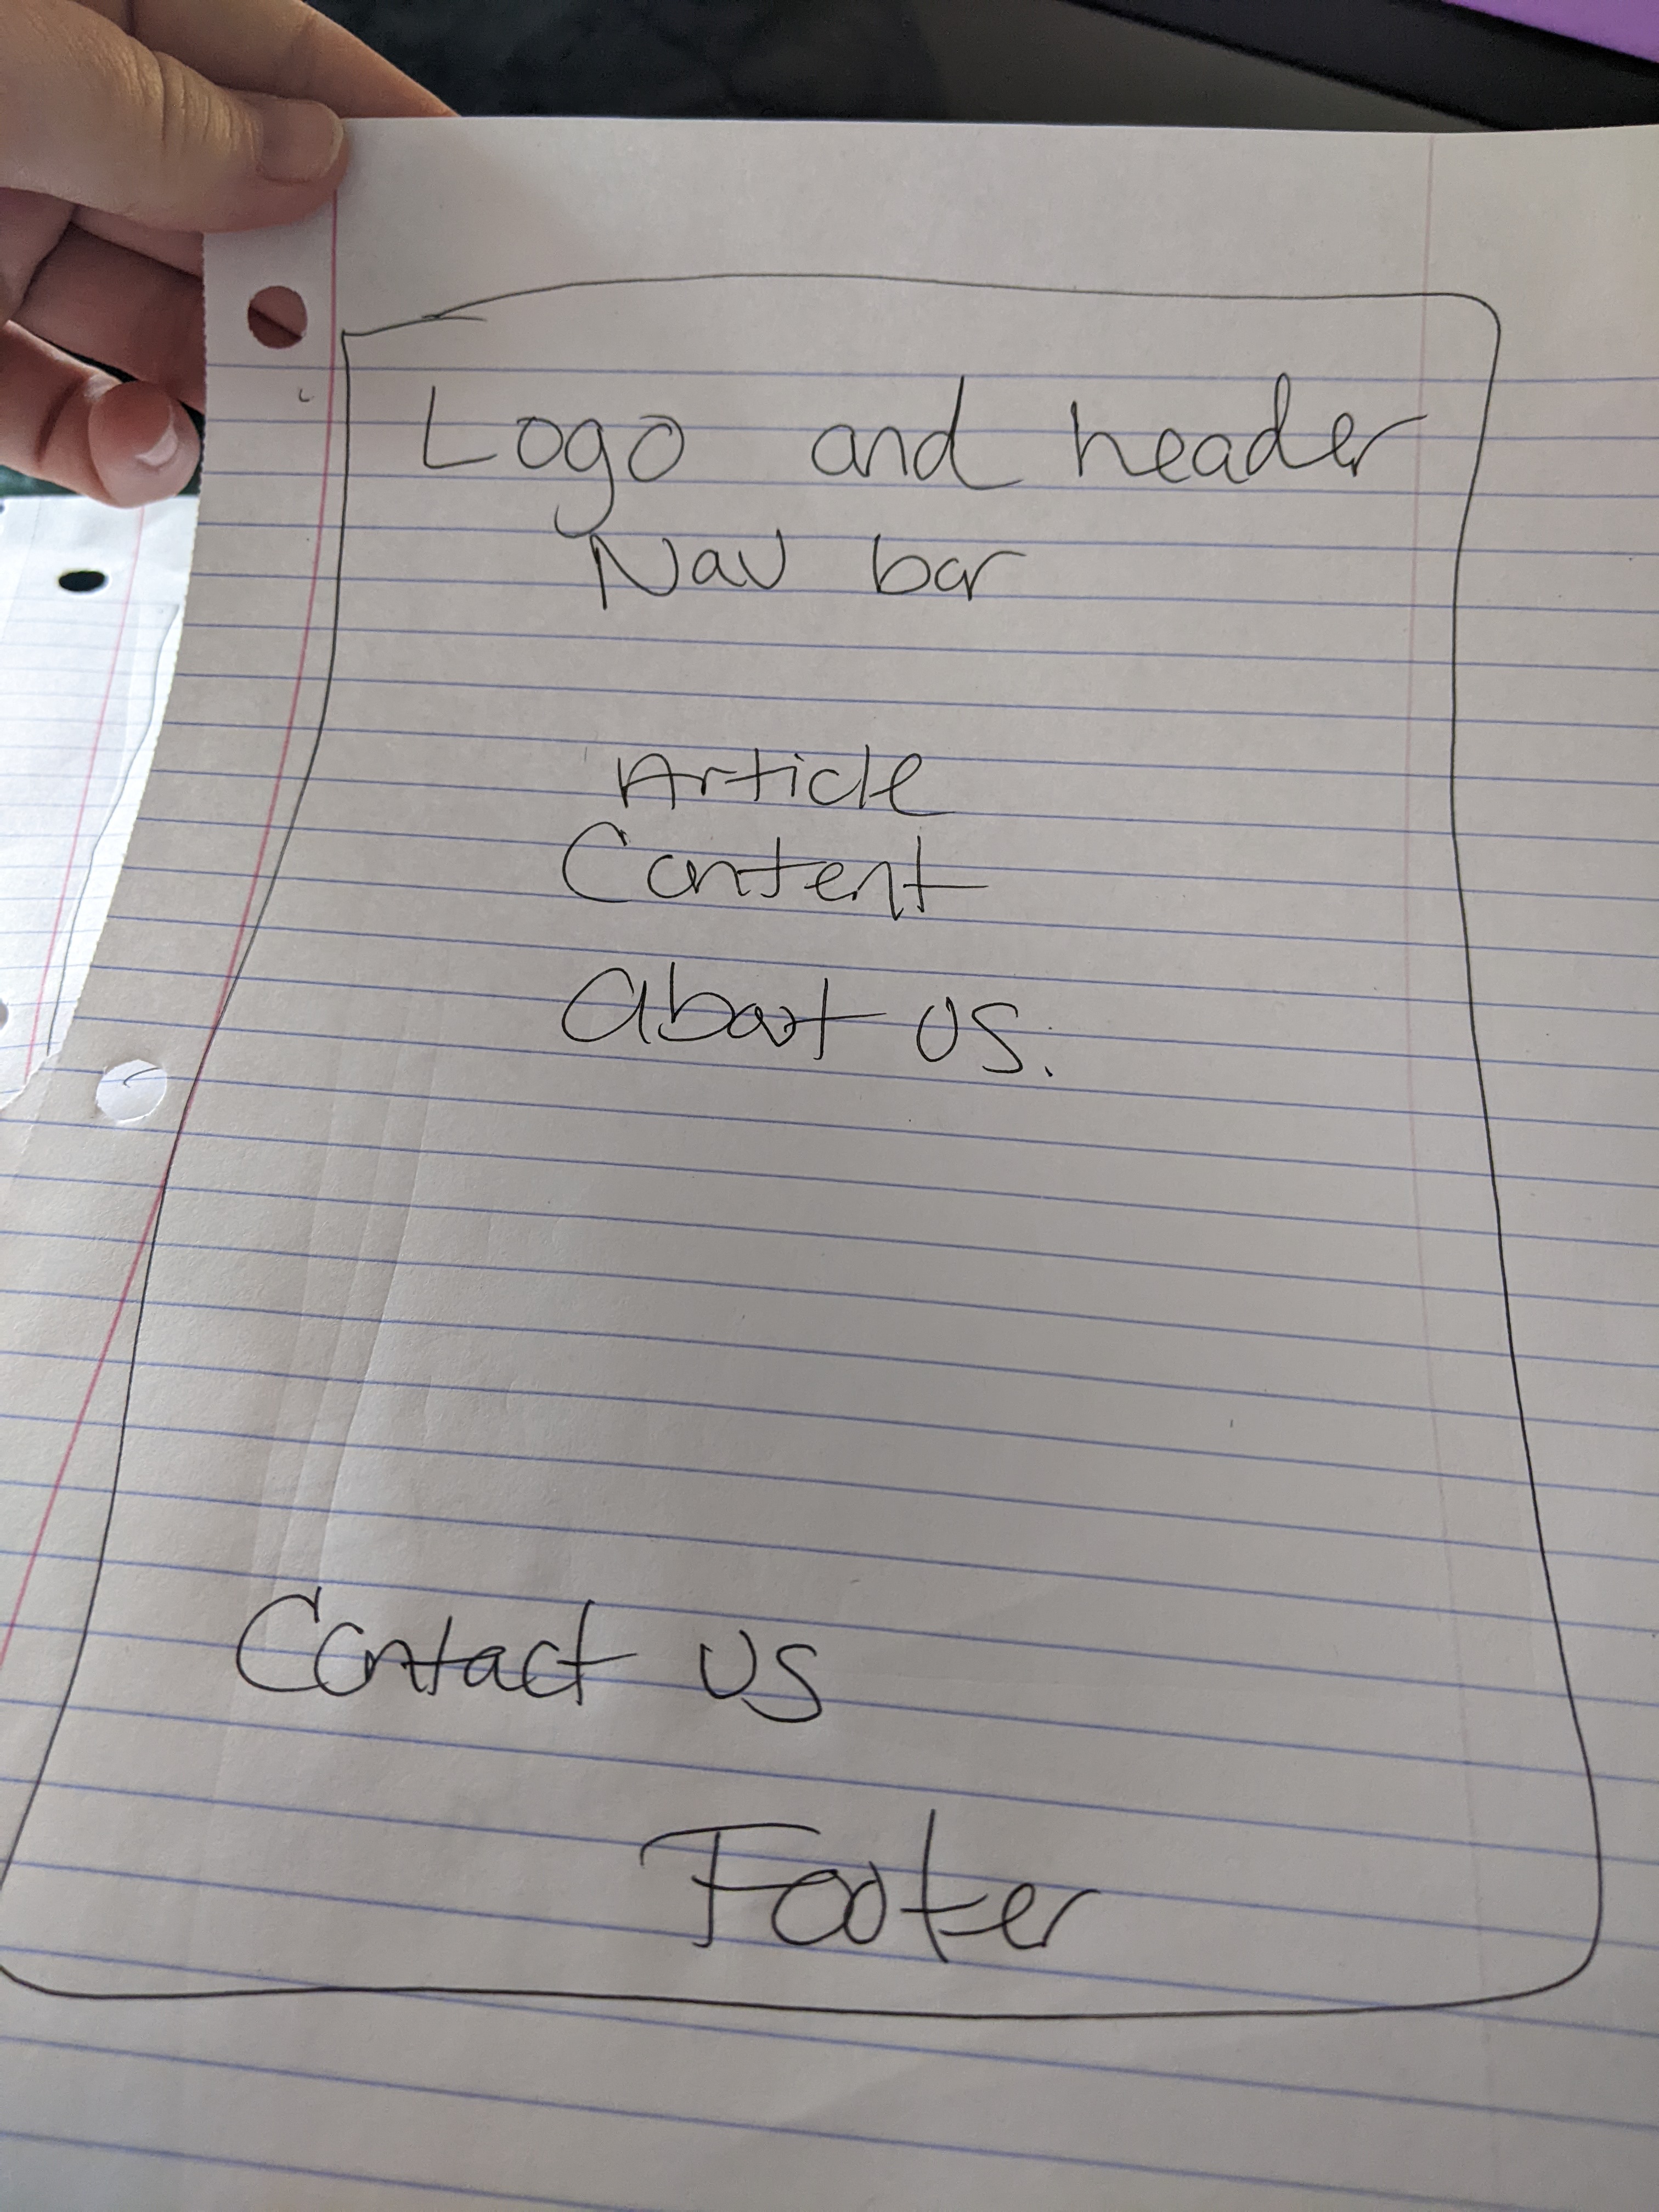 Logo and header
Nav bar
Article
Content
About us.
Contact us
Footer